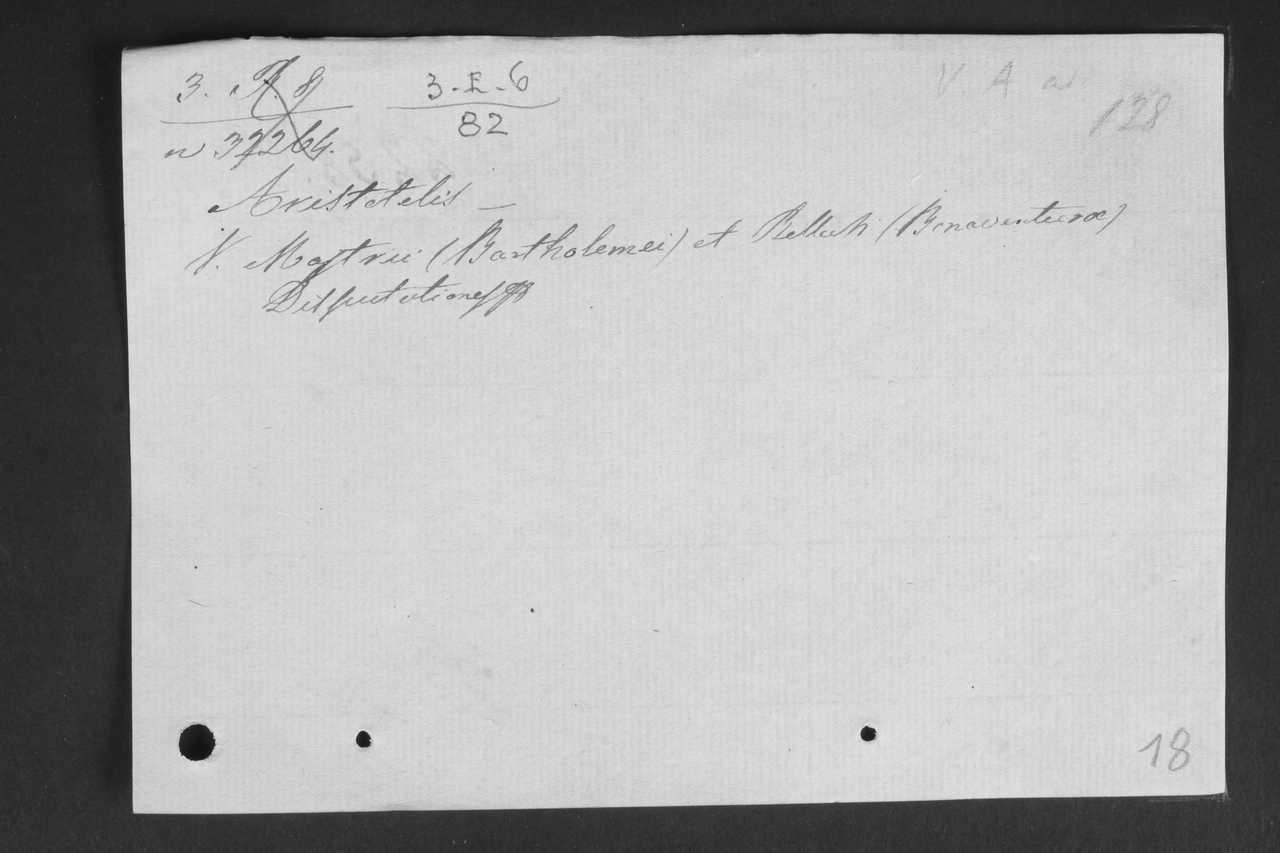 3. A. 8 3-E-6
n 37264. 82
V. A
128
Aristotelis —
V. Mastrii (Bartholomei) et Belluti (Bonaventuræ)
Disputationes
18